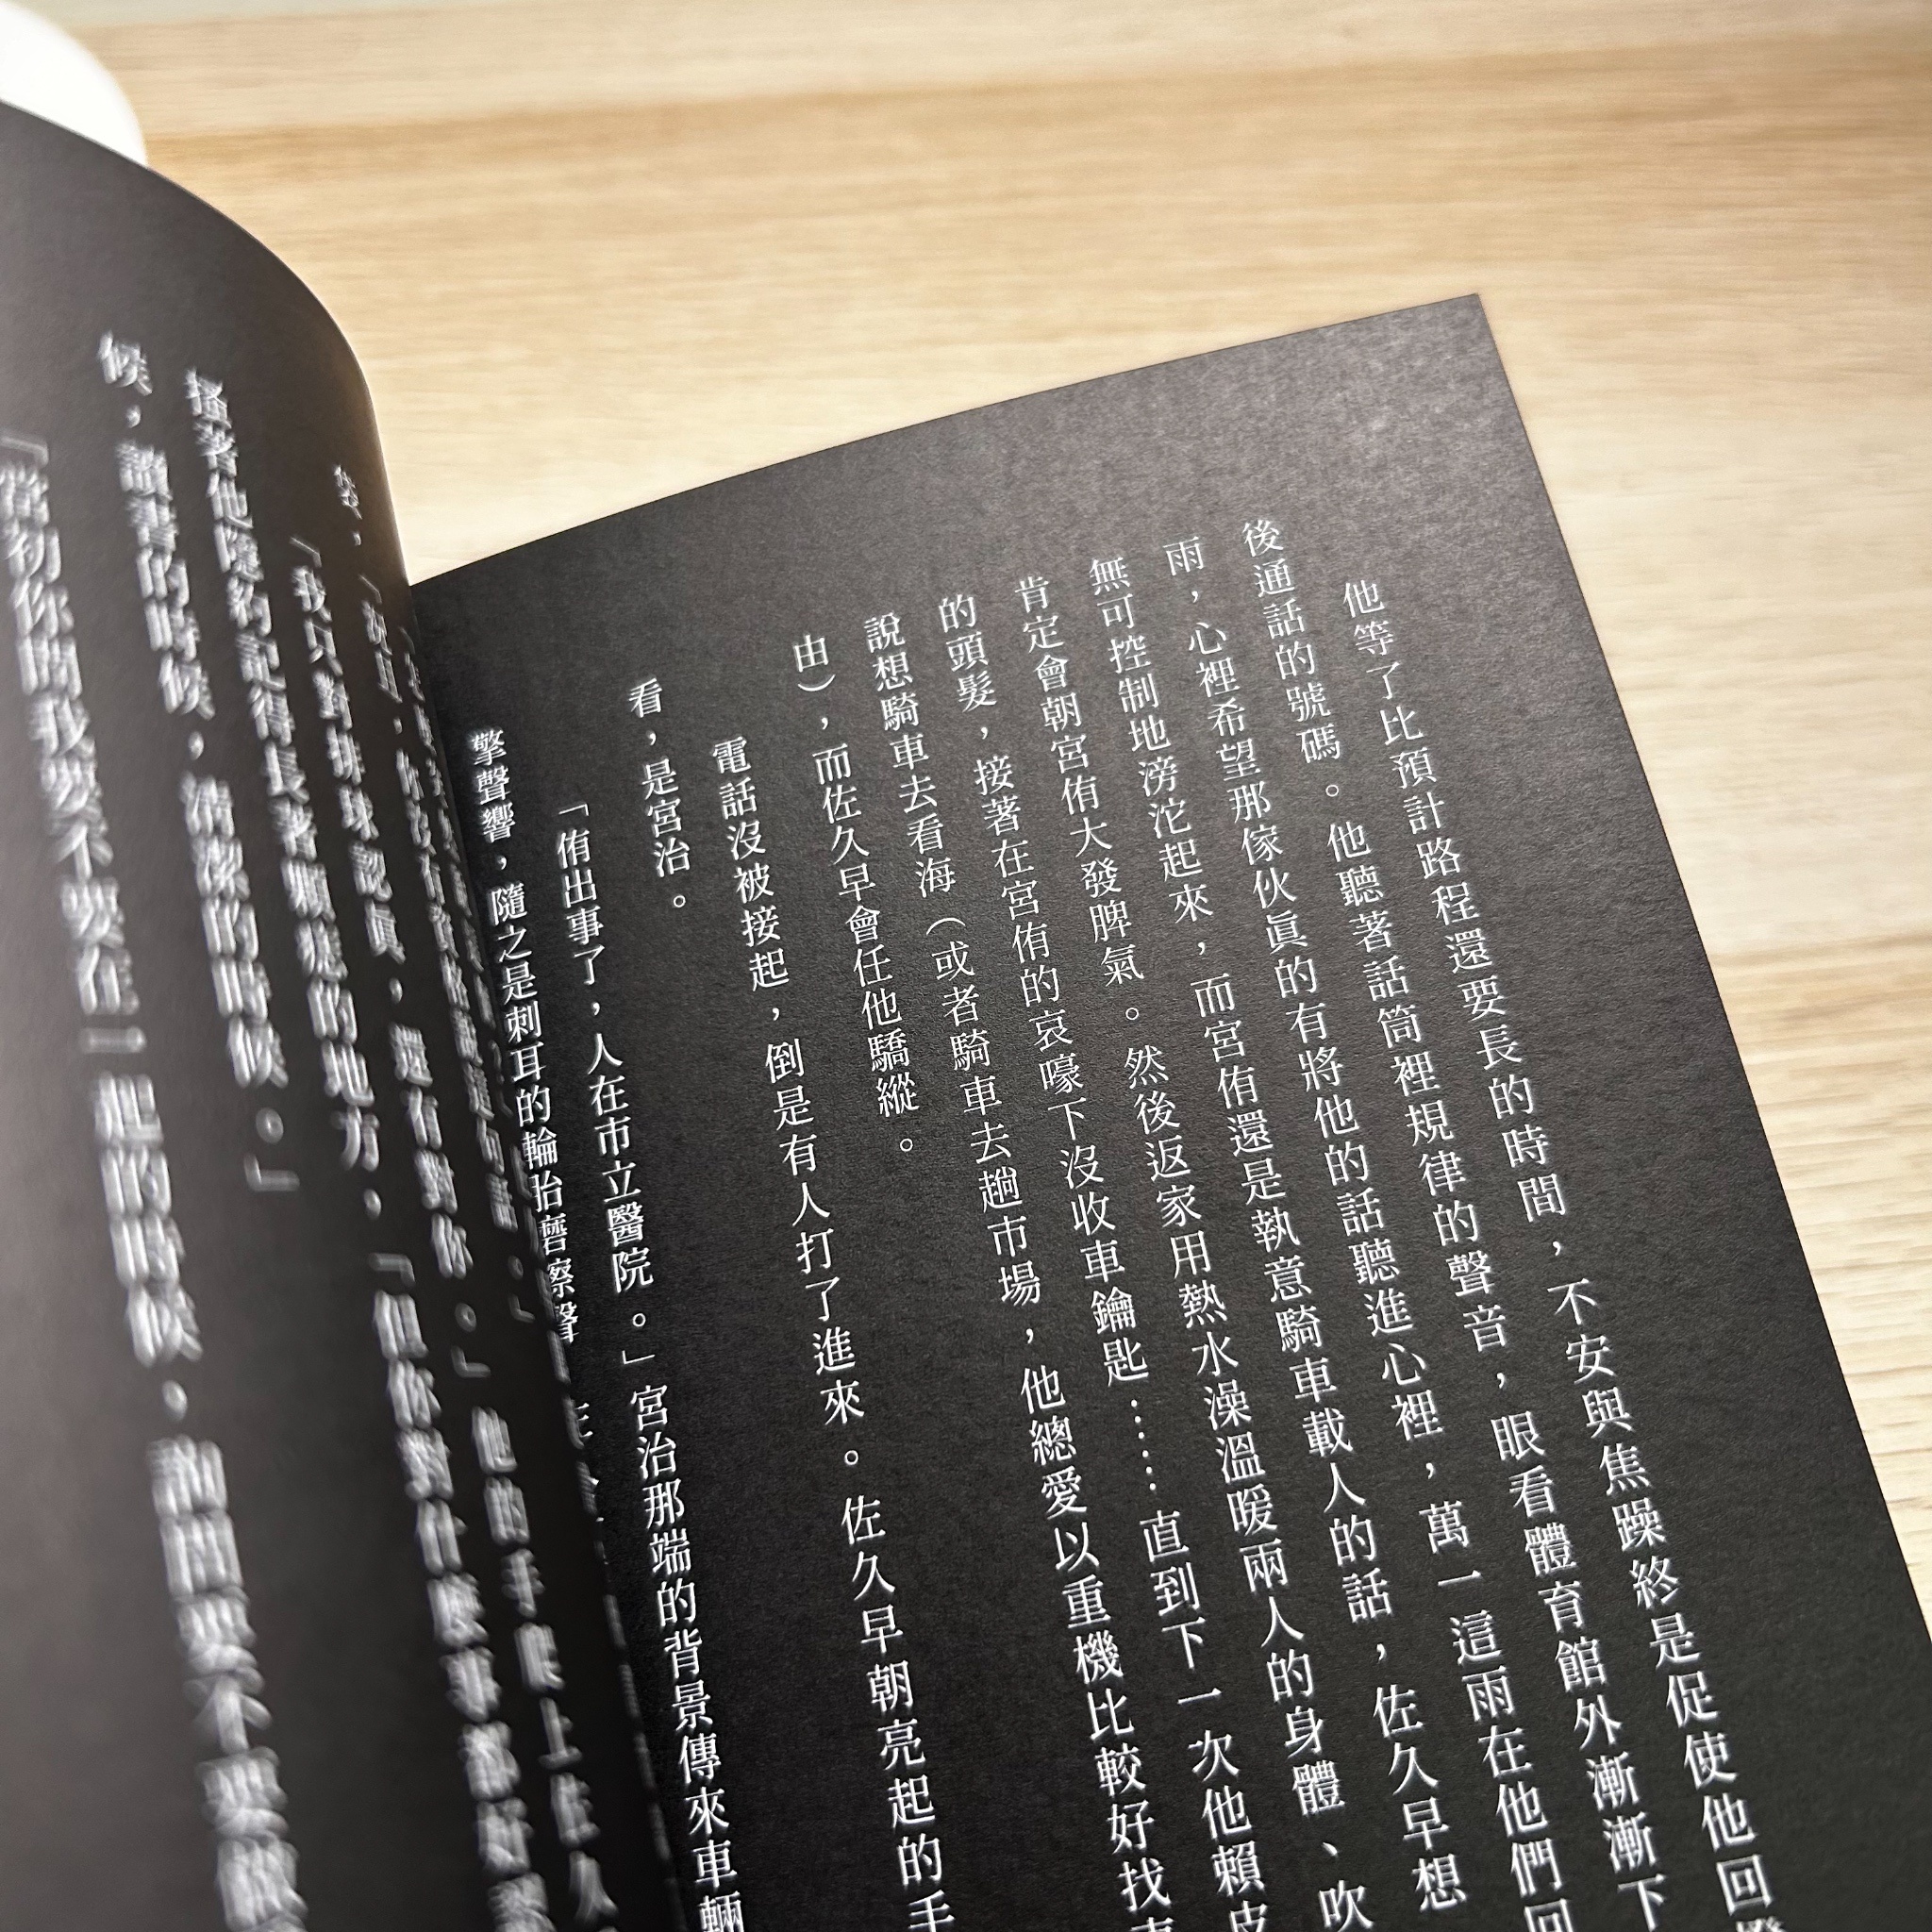 他等了比預計路程還要長的時間，不安與焦躁終是促使他回
後通話的號碼。他聽著話筒裡規律的聲音，眼看體育館外漸漸下
雨，心裡希望那傢伙眞的有將他的話聽進心裡，萬一這雨在他們回
無可控制地滂沱起來，而宮侑還是執意騎車載人的話，佐久早想
肯定會朝宮侑大發脾氣。然後返家用熱水澡溫暖兩人的身體、吹
的頭髮，接著在宮侑的哀嚎下沒收車鑰匙⋯⋯直到下一次他賴皮
說想騎車去看海（或者騎車去趟市場，他總愛以重機比較好找
由），而佐久早會任他驕縱。
電話沒被接起，倒是有人打了進來。佐久早朝亮起的手
看，是宮治。
「侑出事了，人在市立醫院。」宮治那端的背景傳來車輛
擎聲響，隨之是刺耳的輪胎磨擦聲
「我只對排球認眞，還有對你。」他的手爬上佐久
搔著他隱約記得長著顆痣的地方，「但你對什麼事都好
候，讀書的時候，清潔的時候。」
「當初你問我要不要在一起的時候，